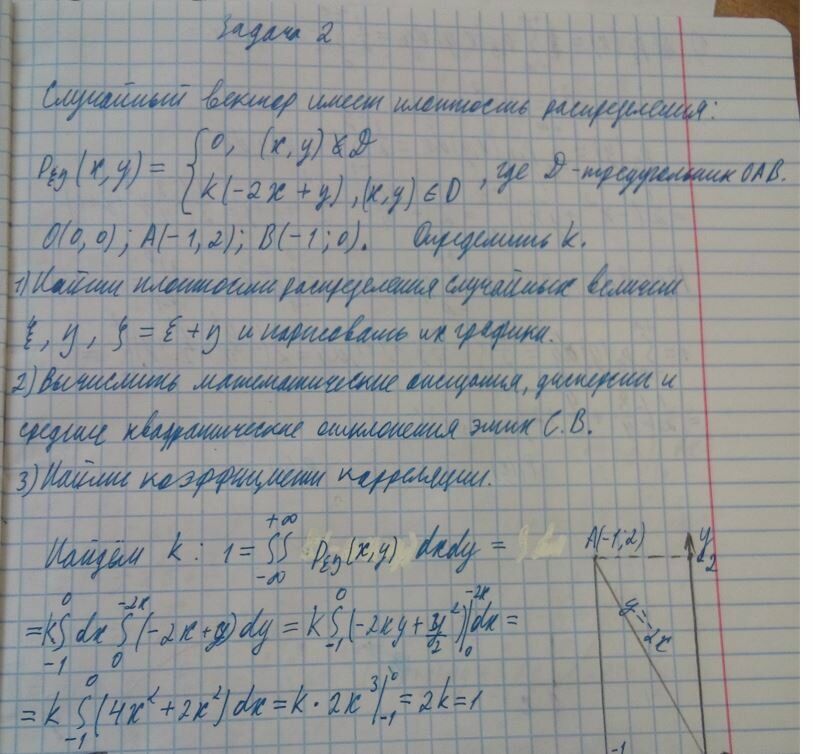 Задача 2
Случайный вектор имеет плотность распределения:
P_ξη(x,y) = { 0, (x,y) ∉ D
k(-2x+y), (x,y) ∈ D , где D - треугольник OAB.
O(0,0); A(-1,2); B(-1;0). Определить k.
1) Найти плотности распределения случайных величин
ξ, η, ζ = ξ + η и нарисовать их графики.
2) Вычислить математические ожидания, дисперсии и
средние квадратические отклонения этих С.В.
3) Найти коэффициент корреляции.
Найдём k: 1 = ∫∫_{-∞}^{+∞} P_ξη(x,y) dxdy =
= k∫_{-1}^{0} dx ∫_{0}^{-2x} (-2x+y)dy = k∫_{-1}^{0} (-2xy + y²/2)|_{0}^{-2x} dx =
= k ∫_{-1}^{0} (4x² + 2x²)dx = k · 2x³|_{-1}^{0} = 2k = 1
A(-1;2)
y
2
y=-2x
-1